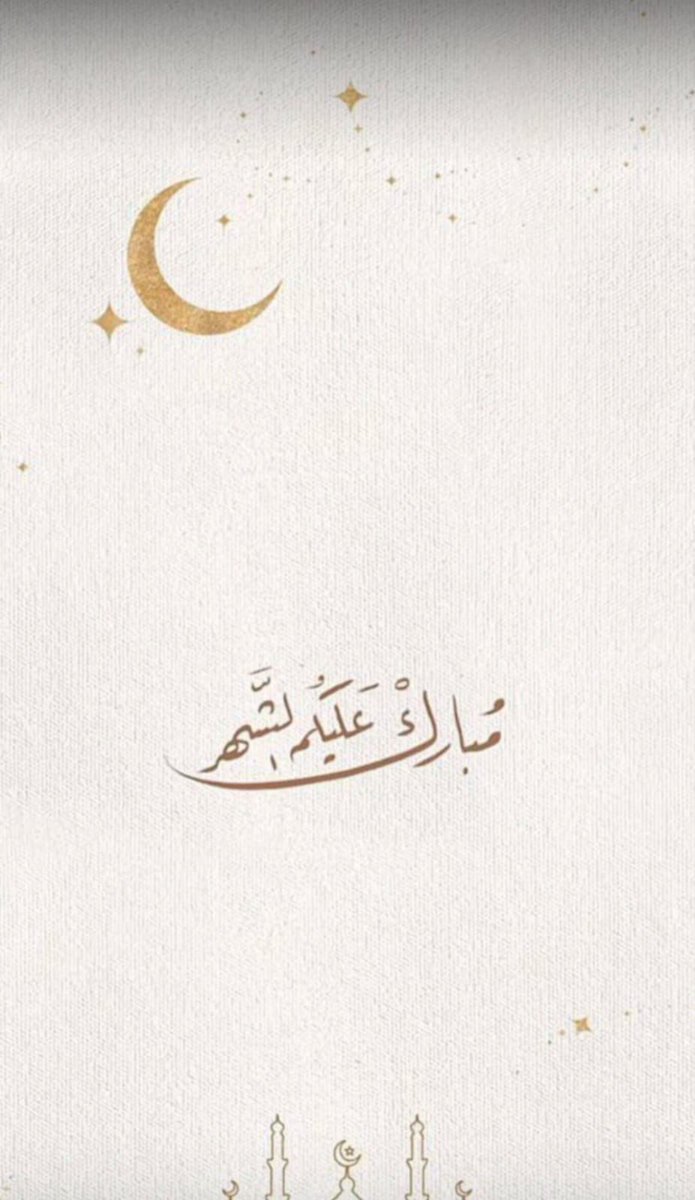 مُبارَكْ عَلَيكُم الشَّهر